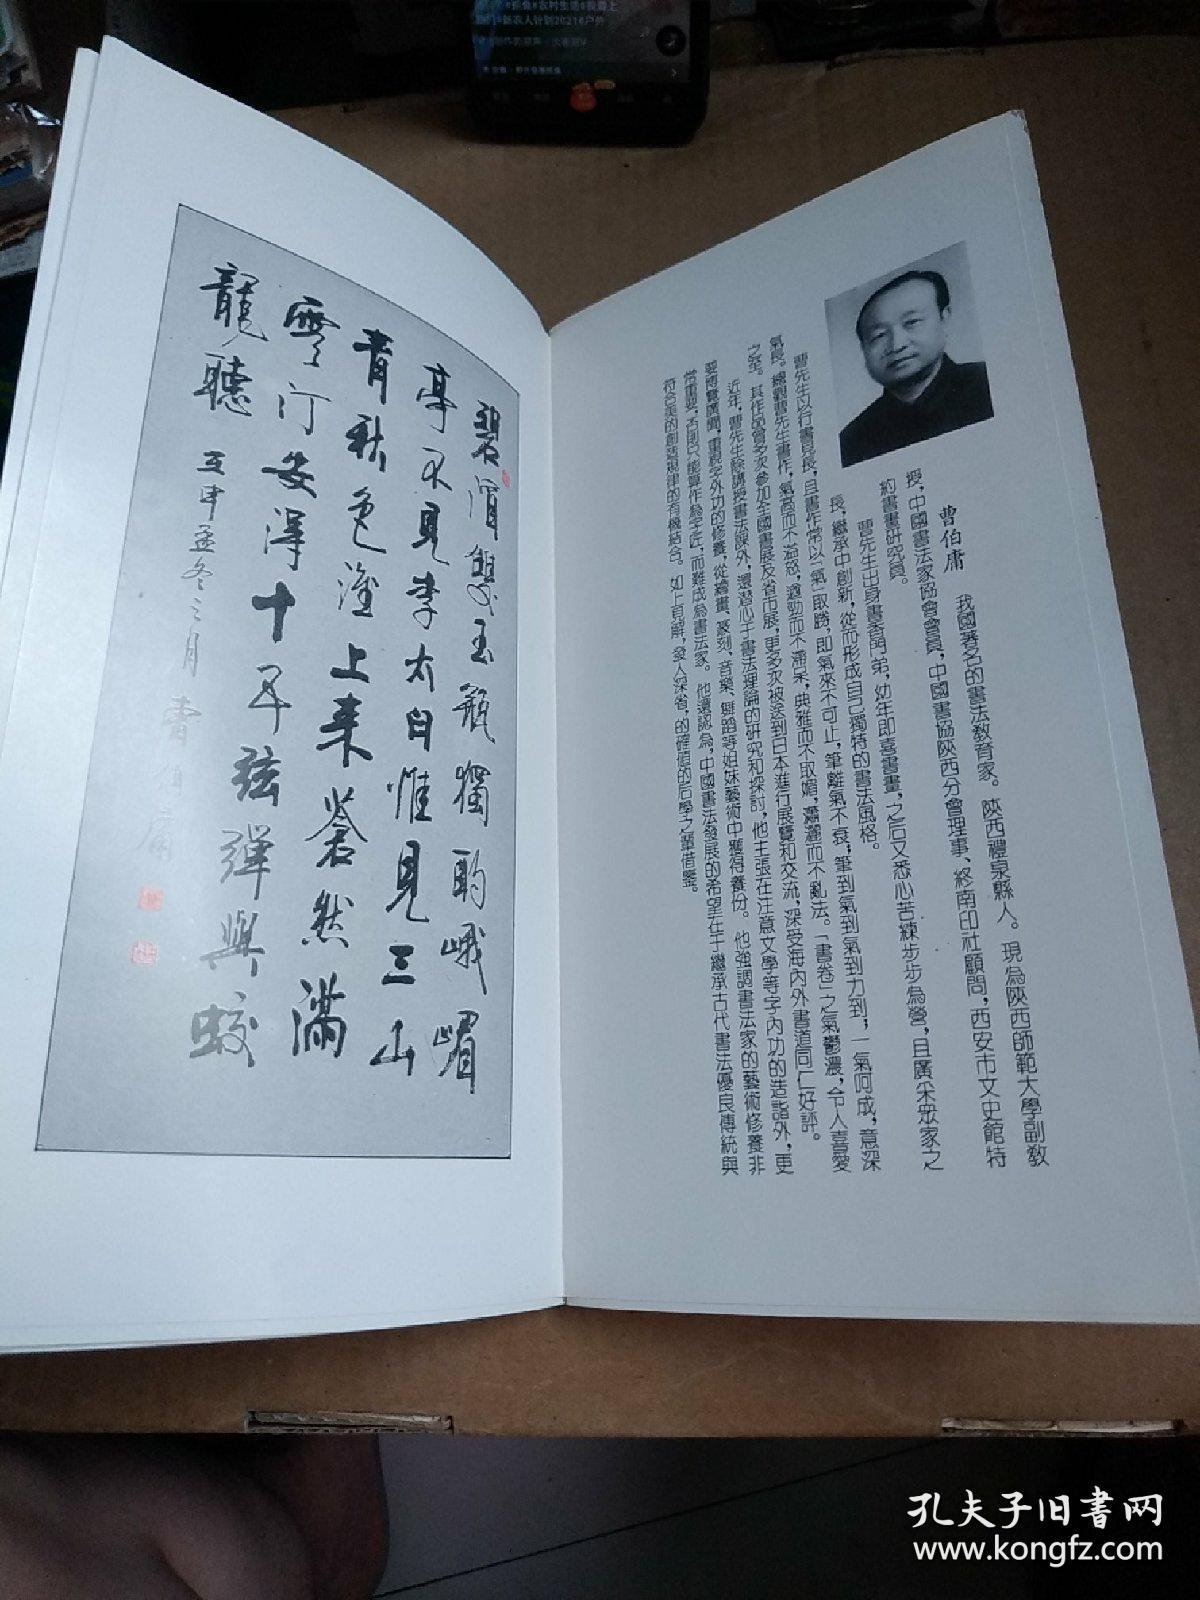 曹伯庸 我國著名的書法教育家。陝西禮泉縣人。現為陝西師範大學副教
授，中國書法家協會會員，中國書協陝西分會理事、終南印社顧問，西安市文史館特
約書畫研究員。
曹先生出身書香門弟，幼年即喜書畫，之后又悉心苦練步步為營，且廣采眾家之
長，繼承中創新，從而形成自己獨特的書法風格。
曹先生以行書見長，且書作常以「氣」取勝，即氣來不可止，筆離氣不衰；筆到氣到力到；一氣呵成，意深
氣長。縱觀曹先生書作，氣高而不溢怒，遒勁而不滯呆，典雅而不取媚，瀟灑而不亂法。「書卷」之氣鬱濃，令人喜愛
之至。其作品曾多次參加全國書展及省市展，更多次被送到日本進行展覽和交流，深受海內外書道同仁好評。
近年，曹先生除講授書法課外，還潜心于書法理論的研究和探討，他主張在注意文學等字內功的造詣外，更
要博覽廣聞，重視字外功的修養，從繪畫、篆刻、音樂、舞蹈等姐妹藝術中獲得養份。他強調書法家的藝術修養非
常重要，否則只能算作為字匠，而難成為書法家。他還認為，中國書法發展的希望在于繼承古代書法優良傳統與
符合美的創造規律的有機結合。如上育解，發人深省，的確值的后學之輩借鑒。
碧溜雙玉瓶獨酌峨嵋
亭不見李太白惟見三山
青秋色渡上来蒼然滿
雩汀安得十五弦彈與蛟
龍聽 壬申孟冬之月曹伯庸
孔夫子旧书网
www.kongfz.com